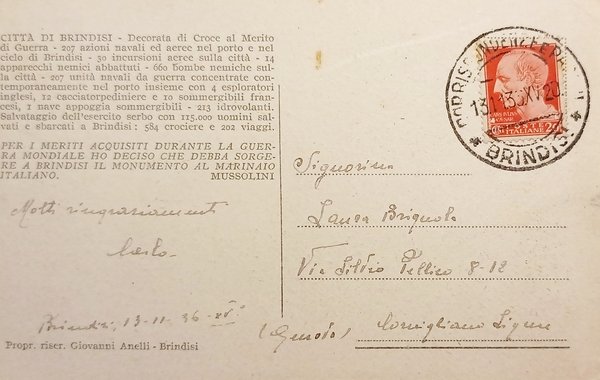 CITTÀ DI BRINDISI - Decorata di Croce al Merito
di Guerra - 207 azioni navali ed aeree nel porto e nel
cielo di Brindisi - 30 incursioni aeree sulla città - 14
apparecchi nemici abbattuti - 660 bombe nemiche sul-
la città - 207 unità navali da guerra concentrate con-
temporaneamente nel porto insieme con 4 esploratori
inglesi, 12 cacciatorpediniere e 10 sommergibili fran-
cesi, 1 nave appoggia sommergibili - 213 idrovolanti.
Salvataggio dell'esercito serbo con 115.000 uomini sal-
vati e sbarcati a Brindisi : 584 crociere e 202 viaggi.
PER I MERITI ACQUISITI DURANTE LA GUER-
RA MONDIALE HO DECISO CHE DEBBA SORGE-
RE A BRINDISI IL MONUMENTO AL MARINAIO
ITALIANO. MUSSOLINI
Molti ringraziamenti
Carlo.
Brindisi, 13-11-36-XV°
Propr. riser. Giovanni Anelli - Brindisi
BRINDISI
POSTE
ITALIANE
Signorina
Laura Brignola
Via Silvio Pellico 8-12
(Genova) Cornigliano Ligure